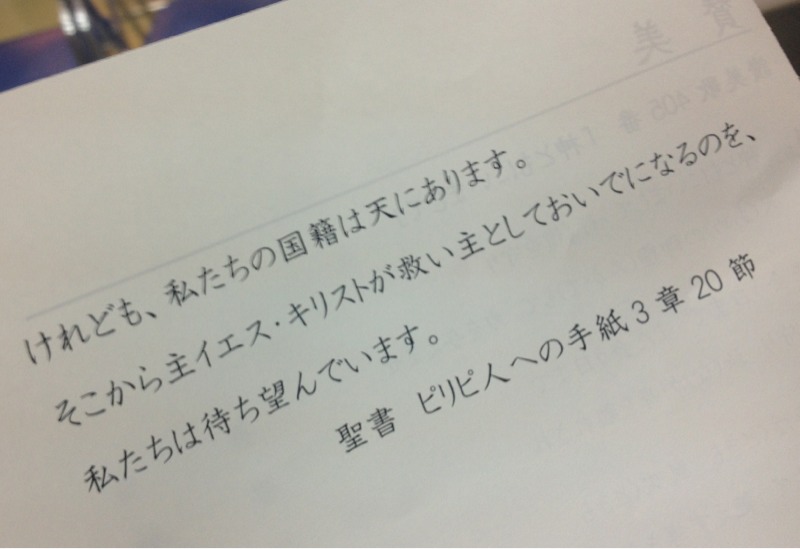 けれども、私たちの国籍は天にあります。
そこから主イエス・キリストが救い主としておいでになるのを、
私たちは待ち望んでいます。
聖書 ピリピ人への手紙3章20節